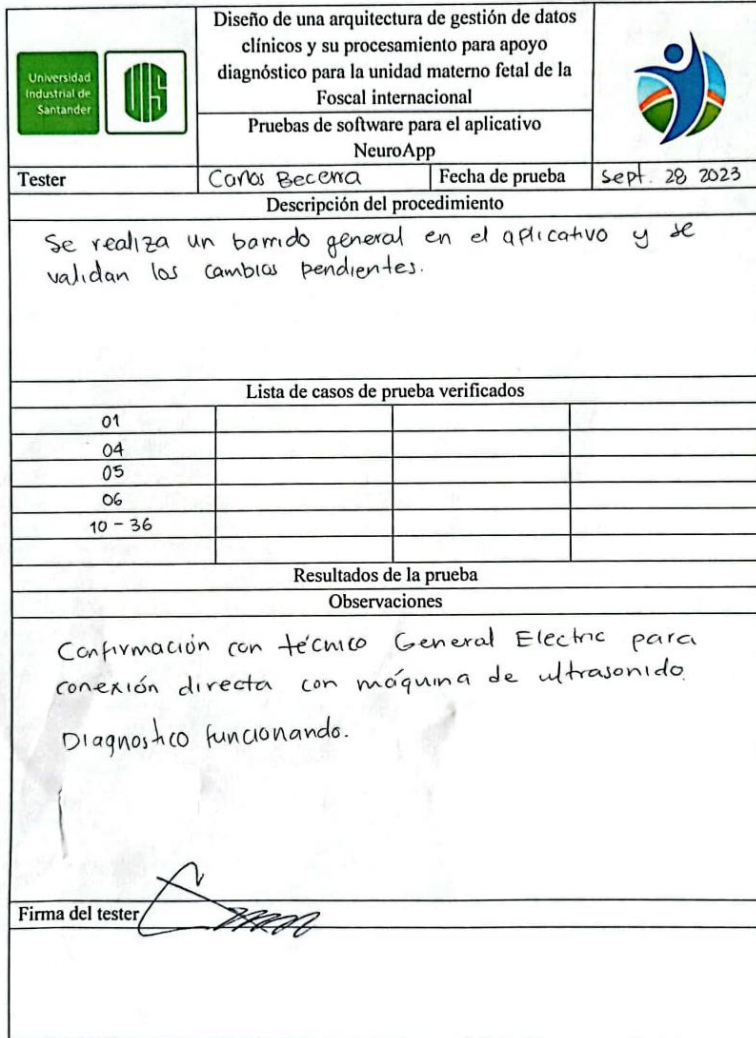 Universidad
Industrial de
Santander
UIS
Diseño de una arquitectura de gestión de datos
clínicos y su procesamiento para apoyo
diagnóstico para la unidad materno fetal de la
Foscal internacional
Pruebas de software para el aplicativo
NeuroApp
Tester Carlos Becerra Fecha de prueba Sept. 28 2023
Descripción del procedimiento
Se realiza un barrido general en el aplicativo y se
validan los cambios pendientes.
Lista de casos de prueba verificados
01
04
05
06
10 - 36
Resultados de la prueba
Observaciones
Confirmación con técnico General Electric para
conexión directa con máquina de ultrasonido.
Diagnostico funcionando.
Firma del tester